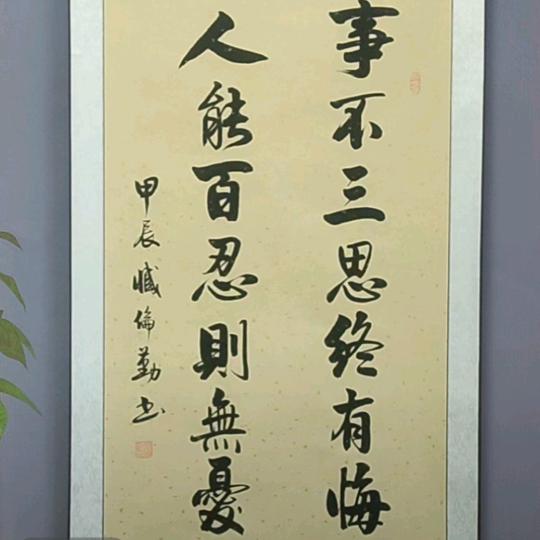 事不三思終有悔
人能百忍則無憂
甲辰臧倫勤书